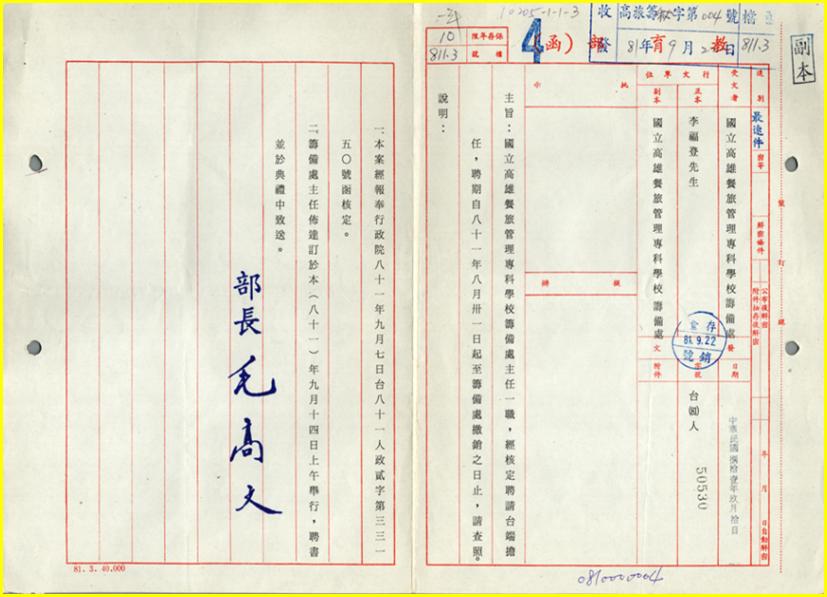 副本
收 高旅籌秘字第004號
發 81年9月2 日
檔
811.3
10205-1-1-3
10 保存年限
811.3 檔號
4
教育部(函)
速別 最速件
密等
解密條件
公布後解密
附件抽存後解密
年 月 日自動解密
受文者 國立高雄餐旅管理專科學校籌備處
行文單位
正本 李福登先生
副本 國立高雄餐旅管理專科學校籌備處
發文
日期 中華民國捌拾壹年玖月拾日
字號 台(81)人 50530
附件
存查
81.9.22
銷號
批示
擬辦
主旨:國立高雄餐旅管理專科學校籌備處主任一職,經核定聘請台端擔
任,聘期自八十一年八月卅一日起至籌備處撤銷之日止,請查照。
說明:
一、本案經報奉行政院八十一年九月七日台八十一人政貳字第三三一
五〇號函核定。
二、籌備處主任佈達訂於本(八十一)年九月十四日上午舉行,聘書
並於典禮中致送。
部長 毛高文
裝
訂
線
81. 3. 40,000
0810000004